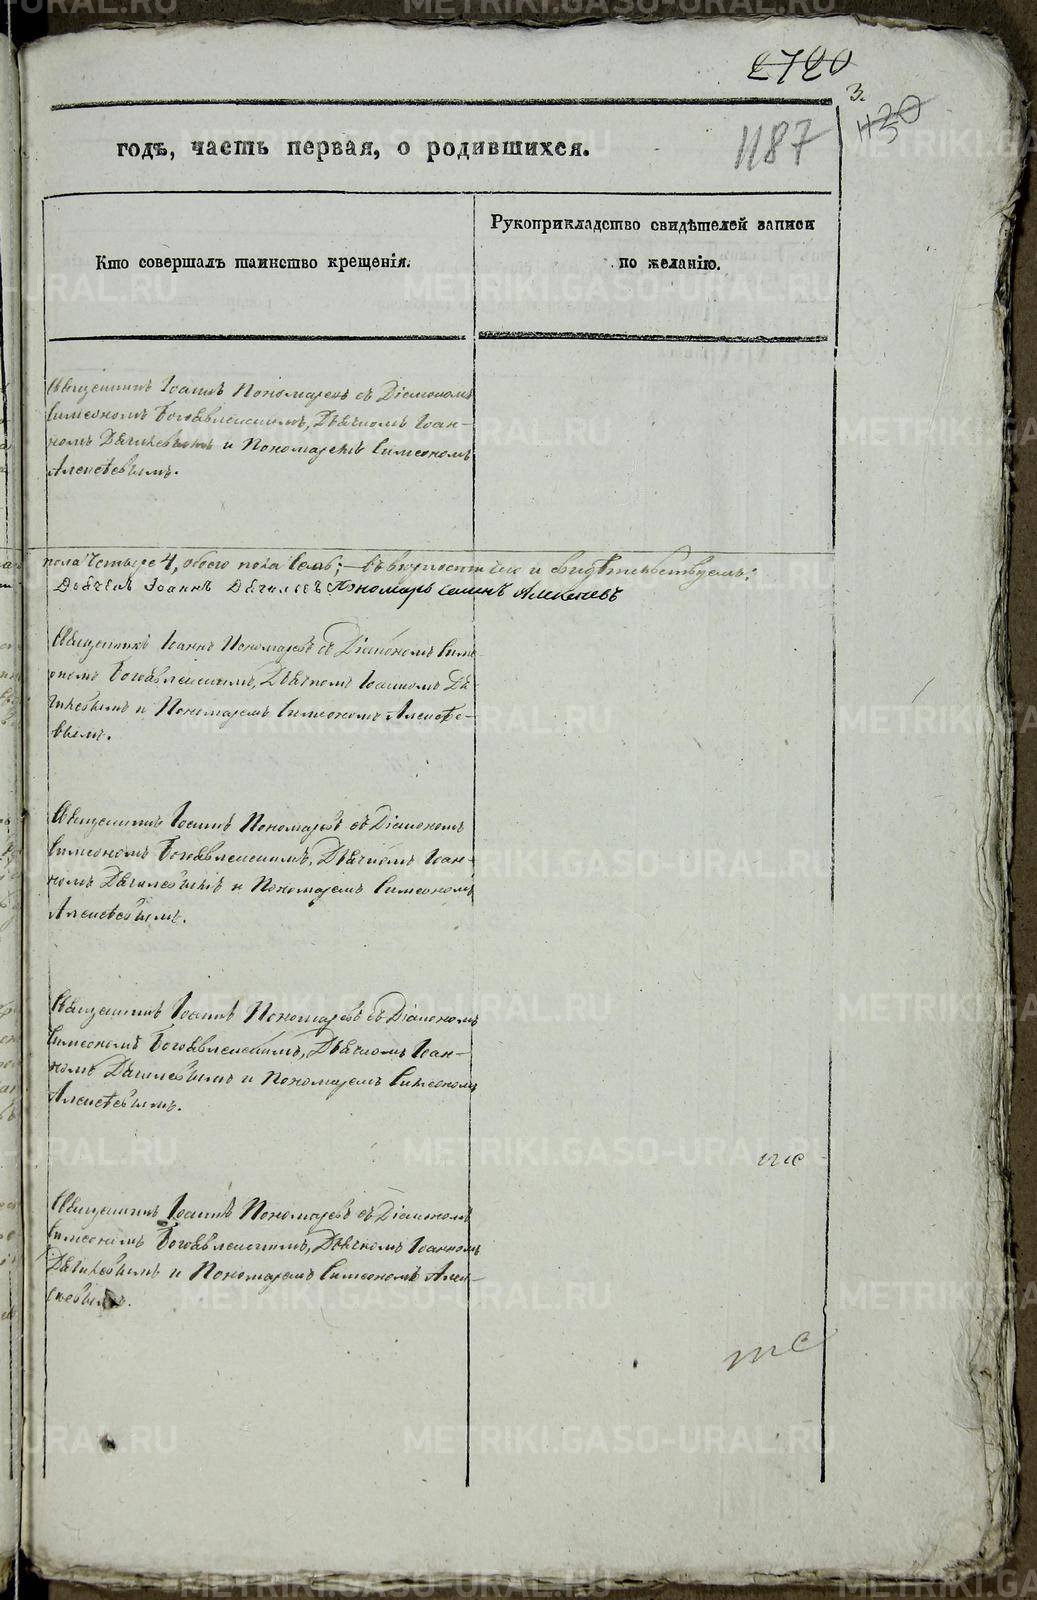 2720
3.
430
1187
годъ, часть первая, о родившихся.
Кто совершалъ таинство крещенія.
Рукоприкладство свидѣтелей записи
по желанію.
Священникъ Іоаннъ Пономаревъ съ Діакономъ
Симеономъ Богоявленскимъ, Дьячкомъ Іоан-
номъ Дягилевымъ и Пономаремъ Симеономъ
Алексѣевымъ.
пола четыре 4, обоего пола семь; въ вѣрности сего и свидѣтельствуемъ:
Дьячекъ Іоаннъ Дягилевъ Пономарь Семенъ Алексеевъ
Священникъ Іоаннъ Пономаревъ съ Діакономъ Симе-
ономъ Богоявленскимъ, Дьячкомъ Іоанномъ Дя-
гилевымъ и Пономаремъ Симеономъ Алексѣе-
вымъ.
Священникъ Іоаннъ Пономаревъ съ Діакономъ
Симеономъ Богоявленскимъ, Дьячкомъ Іоан-
номъ Дягилевымъ и Пономаремъ Симеономъ
Алексѣевымъ.
Священникъ Іоаннъ Пономаревъ съ Діакономъ
Симеономъ Богоявленскимъ, Дьячкомъ Іоан-
номъ Дягилевымъ и Пономаремъ Симеономъ
Алексѣевымъ.
Священникъ Іоаннъ Пономаревъ съ Діакономъ
Симеономъ Богоявленскимъ, Дьячкомъ Іоанномъ
Дягилевымъ и Пономаремъ Симеономъ Алек-
сѣевымъ.
METRIKI.GASO-URAL.RU